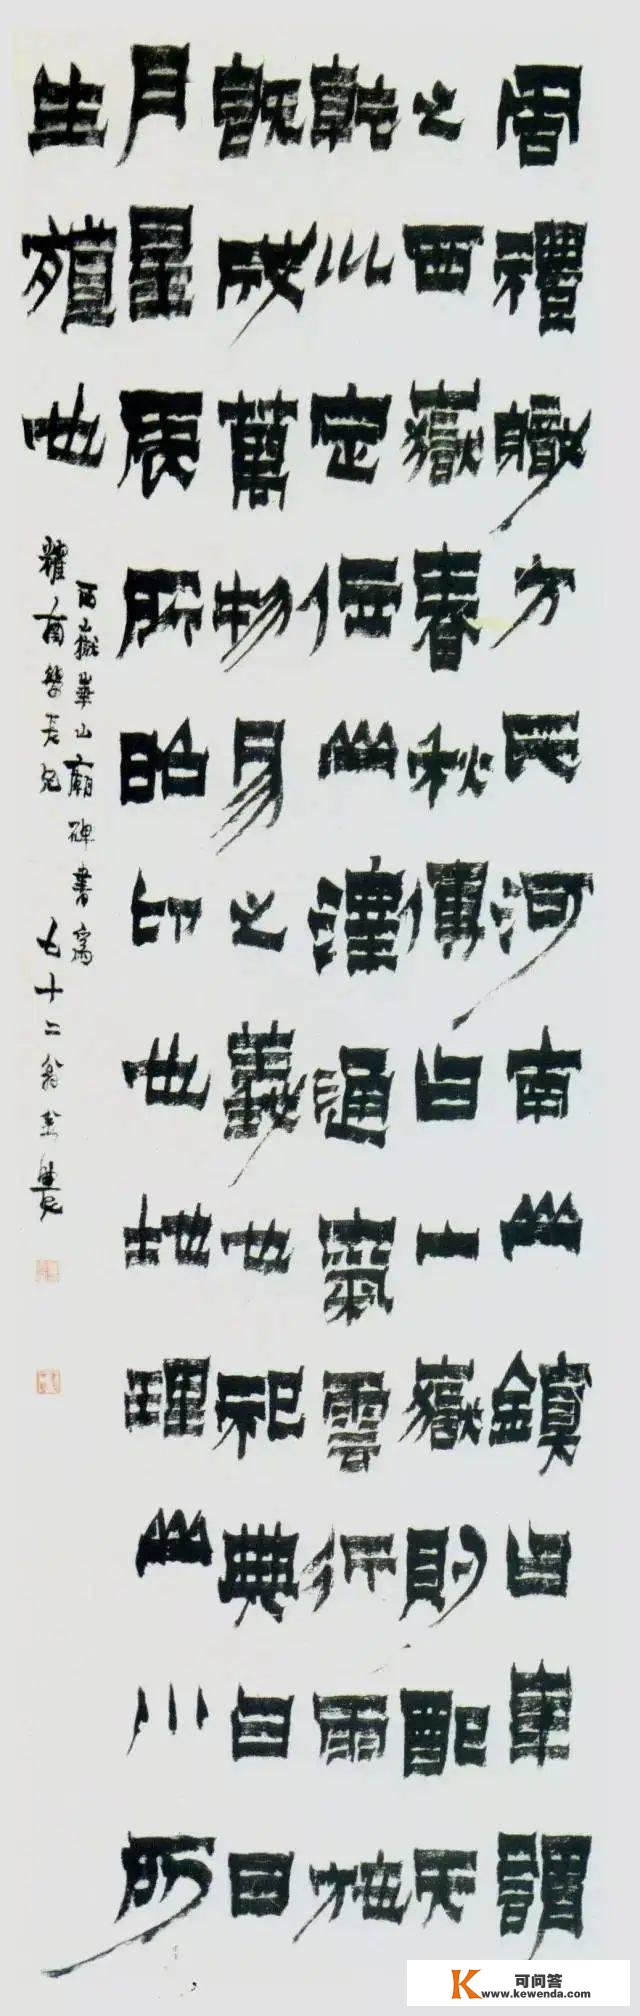 周禮職方氏河南山鎮曰華謂
之西嶽春秋傳曰山嶽則配天
乾川定位山澤通氣雲行雨施
既成萬物易之義也祀典曰日
月星辰所昭卬也地理山川所
生殖也
西嶽華山廟碑書寄
耀南學長兄 七十二翁金農
可问答
www.kewenda.com